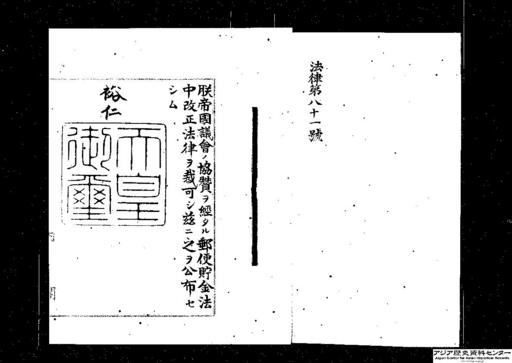 法律第八十一號
朕帝國議會ノ協贊ヲ經タル郵便貯金法
中改正法律ヲ裁可シ玆ニ之ヲ公布セ
シム
裕仁
天皇御璽
アジア歴史資料センター
Japan Center for Asian Historical Records